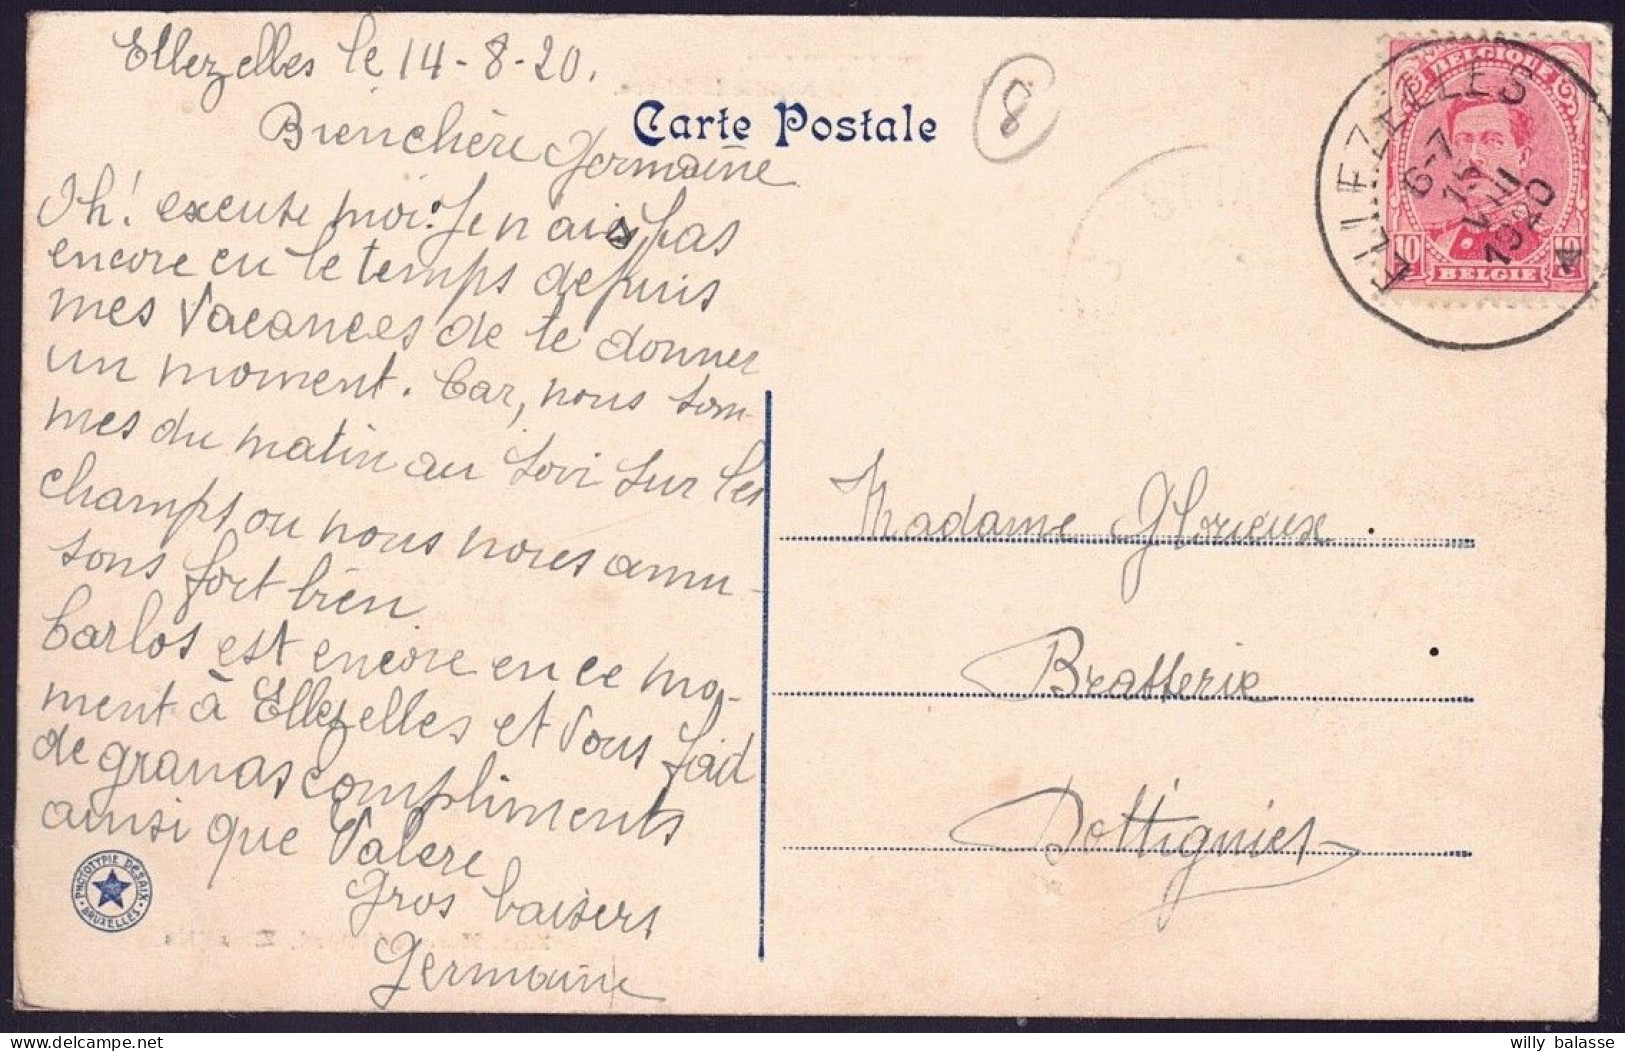 Ellezelles le 14-8-20.
Bien chère Germaine
Oh! excuse moi. Je n'ai pas
encore eu le temps depuis
mes vacances de te donner
un moment. Car, nous som-
mes du matin au soir sur les
champs ou nous nous amu-
sons fort bien.
Carlos est encore en ce mo-
ment à Ellezelles et vous faid
de grands compliments
ainsi que Valere
Gros baisers
Germaine
Carte Postale
8
ELLEZELLES
6-7
15
VIII
1920
BELGIQUE
10
BELGIE
Madame Glorieux
Brasserie
Dottignies
PHOTOTYPIE DESAIX
BRUXELLES
willy balasse